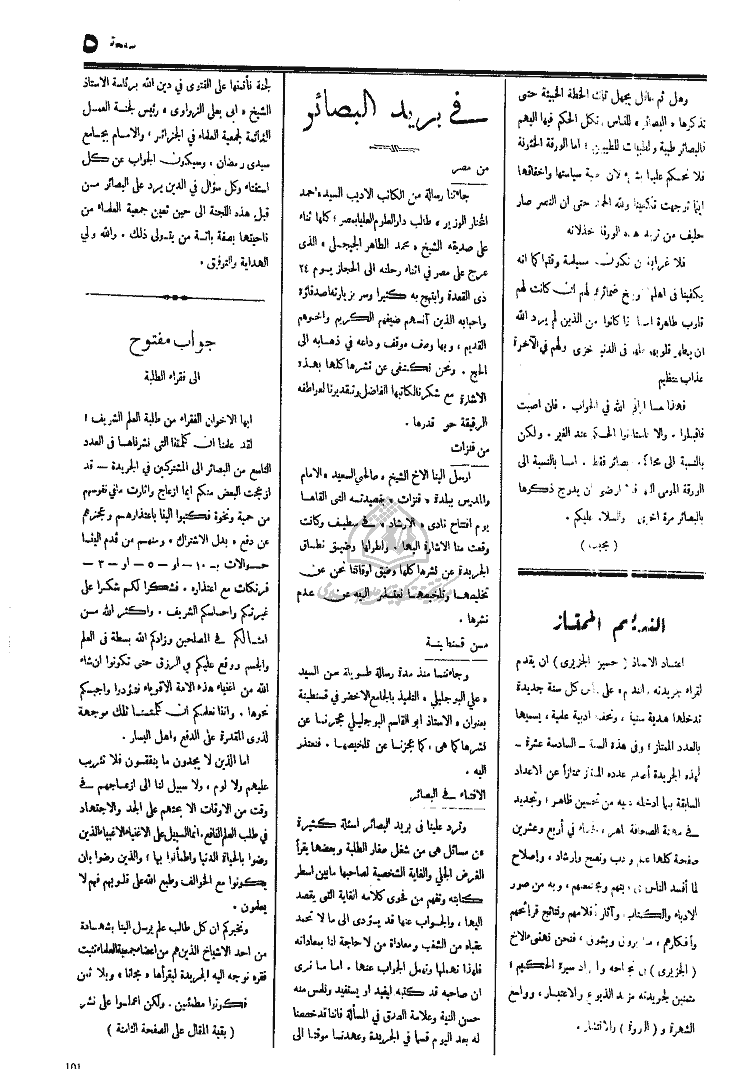 صفحة ٥
وهل ثم عاقل يجهل تلك الخطة الخبيثة حتى
تذكرها « البصائر » للناس
فلا غرابة ان تكون سياسة وقتها كما انه
قارب طاهرة
كانوا من الذين لم يرد الله
ان يطهر قلوبهم لهم في الدنيا خزي ولهم في الآخرة
عذاب عظيم
الله في الجواب . فان اصبت
فاقبلوا . والا
الحكم عند الغير . ولكن
بالنسبة الى
بصائر فقط . اما بالنسبة الى
ان يدرج ذكرها
بالبصائر مرة اخرى والسلام عليكم .
النديم الممتاز
اعتاد الاستاذ ( حسين الجزيري ) ان يقدم
لقراء جريدته « النديم » على رأس كل سنة جديدة
تدخلها هدية سنية ، وتحفة ادبية علمية ، يسميها
بالعدد الممتاز ؛ وفي هذه السنة – السادسة عشرة –
لهذه الجريدة أصدر عدده الممتاز ممتازاً عن الاعداد
السابقة بما ادخله عليه من تحسين ظاهر ؛ وتجديد
في مهنة الصحافة
في أربع وعشرين
صفحة كلها علم وأدب ونصح وإرشاد ، وإصلاح
لما أفسد الناس
وبه من صور
الادباء والكتاب وآثار أقلامهم ونتائج قرائحهم
وأفكارهم ،
ويشوق ، فنحن نهنئ الاخ
( الجزيري )
نجاحه
سيرة الحكيم ؛
متمنين لجريدته مزيد الذيوع والاعتبار ، وواسع
الشهرة و ( الرواج ) والانتشار .
في بريد البصائر
من مصر
جاءتنا رسالة من الكاتب الاديب السيد احمد
المختار الوزير « طالب دار العلوم العليا بمصر ؛ كلها ثناء
على صديقه الشيخ « محمد الطاهر الجيجلي » الذي
عرج على مصر في اثناء رحلته الى الحجاز يوم ٢٤
ذي القعدة وابتهج به كثيرا وسر بزيارته أصدقاؤه
واحبابه الذين آنسهم ضيفهم الكريم واخوهم
القديم ، وبها وصف موقف وداعه في ذهابه الى
الحج . ونحن نكتفي عن نشرها كلها بهذه
الاشارة مع شكرنا لكاتبها الفاضل وتقديرنا لعواطفه
الرقيقة حق قدرها .
من قنزات
ارسل الينا الاخ الشيخ « صالحي السعيد » الامام
والمدرس ببلدة « قنزات » بقصيدته التي القاها
يوم افتتاح نادي « الارشاد » في سطيف وكانت
وقعت منا الاشارة اليها . ولطولها وضيق نطاق
الجريدة عن نشرها كلها وضيق اوقاتنا نحن عن
تخليصها وتلخيصها نعتذر اليه عن عدم
نشرها .
من قسنطينة
وجاءتنا منذ مدة رسالة طويلة من السيد
« علي البوجليلي » التلميذ بالجامع الاخضر في قسنطينة
بعنوان « الاستاذ ابو القاسم البوجليلي عجزنا عن
نشرها كما هي ، كما عجزنا عن تلخيصها . فنعتذر
اليه .
الافتاء في البصائر
وترد علينا في بريد البصائر اسئلة كثيرة
عن مسائل هي من شغل صغار الطلبة وبعضها يقرأ
الغرض الجلي والغاية الشخصية لصاحبها مابين اسطر
كتابته وتفهم من فحوى كلامه الغاية التي يقصد
اليها ، والجواب عنها قد يؤدي الى ما لا تحمد
عقباه من الشغب ومعاداة من لا حاجة لنا بمعاداته
فلهذا نهملها ونهمل الجواب عنها . اما ما نرى
ان صاحبه قد كتبه ليفيد او يستفيد ونلمس منه
حسن النية وعلامة الصدق في المسألة فاننا قد خصصنا
له بعد اليوم قسما في الجريدة وعهدنا موقتا الى
لجنة نأتمنها على الفتوى في دين الله برئاسة الاستاذ
الشيخ « ابي يعلى الزواوي » رئيس لجنة العمل
الدائمة لجمعية العلماء في الجزائر ، والامام بجامع
سيدي رمضان ، وسيكون الجواب عن كل
استفتاء وكل سؤال في الدين يرد على البصائر من
قبل هذه اللجنة الى حين تعين جمعية العلماء من
ناحيتها بصفة باتة من يتولى ذلك . والله ولي
الهداية والتوفيق .
جواب مفتوح
الى فقراء الطلبة
ايها الاخوان الفقراء من طلبة العلم الشريف ؛
لقد علمنا ان كلمتنا التي نشرناها في العدد
التاسع من البصائر الى المشتركين في الجريدة – قد
ازعجت البعض منكم ايما ازعاج واثارت مافي نفوسهم
من حمية ونخوة فكتبوا الينا باعتذارهم وعجزهم
عن دفع « بدل الاشتراك » ومنهم من قدم الينا
حوالات بـ – ١٠ – او – ٥ – او – ٣ –
فرنكات مع اعتذاره . فشكرا لكم شكرا على
غيرتكم واحساسكم الشريف . واكثر الله من
امثالكم في المصلحين وزادكم الله بسطة في العلم
والجسم ووسع عليكم في الرزق حتى تكونوا ان شاء
الله من اغنياء هذه الامة الاقوياء فتؤدوا واجبكم
نحوها . واننا نعلمكم ان كلمتنا تلك موجهة
لذوي المقدرة على الدفع واهل اليسار .
اما الذين لا يجدون ما ينفقون فلا تثريب
عليهم ولا لوم ، ولا سبيل لنا الى ازعاجهم في
وقت من الاوقات الا بحثهم على الجد والاجتهاد
في طلب العلم النافع . انما السبيل على الاغنياء الاغبياء الذين
رضوا بالحياة الدنيا واطمأنوا بها ؛ والذين رضوا بان
يكونوا مع الخوالف وطبع الله على قلوبهم فهم لا
يعلمون .
ونخبركم ان كل طالب علم يرسل الينا بشهادة
من احد الاشياخ الذين هم من اعضاء جمعية العلماء تثبت
فقره نوجه اليه الجريدة ليقرأها « مجانا » وبلا ثمن
فكونوا مطمئنين . ولكن اعملوا على نشر
( بقية المقال على الصفحة الثامنة )
101